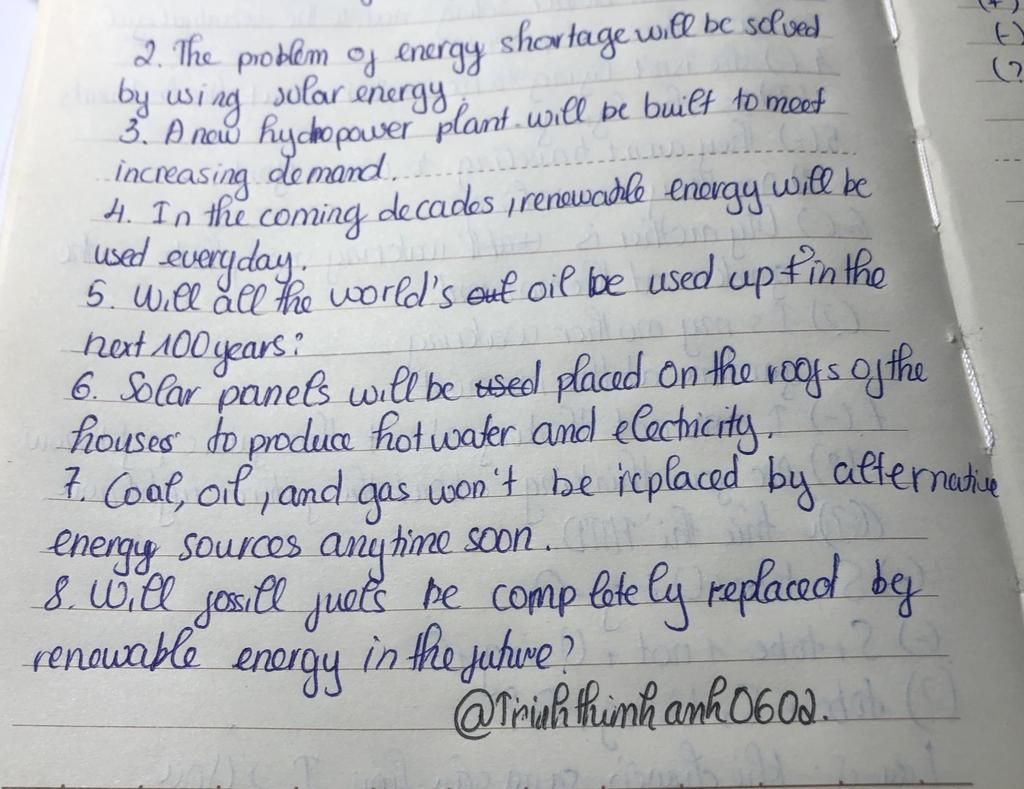 2. The problem of energy shortage will be solved
by using solar energy.
3. A new hydropower plant will be built to meet
increasing demand.
4. In the coming decades, renewable energy will be
used everyday.
5. Will all the world's out oil be used up ? in the
next 100 years?
6. Solar panels will be used placed on the roofs of the
houses to produce hot water and electricity.
7. Coal, oil, and gas won't be replaced by alternative
energy sources anytime soon.
8. Will fossill fuels be completely replaced by
renewable energy in the future?
@Trinhthiminhanh0602.
(-)
(?